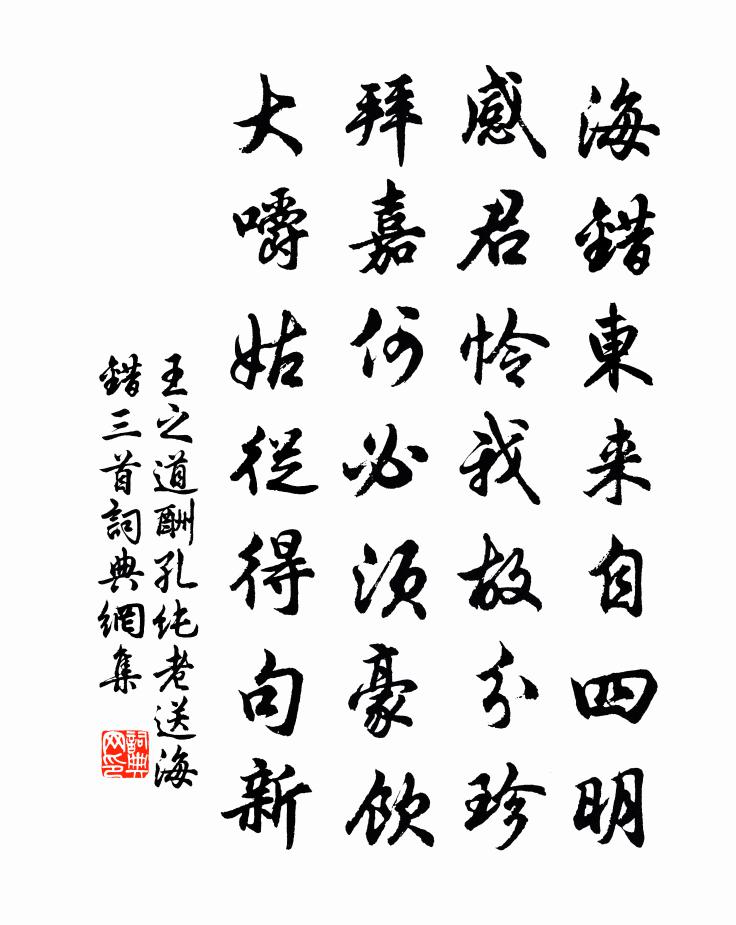 海錯東来自四明
感君怜我故分珍
拜嘉何必須豪飲
大嚼姑從得句新
王之道酬孔純老送海
錯三首詞典網集
詞典
网印